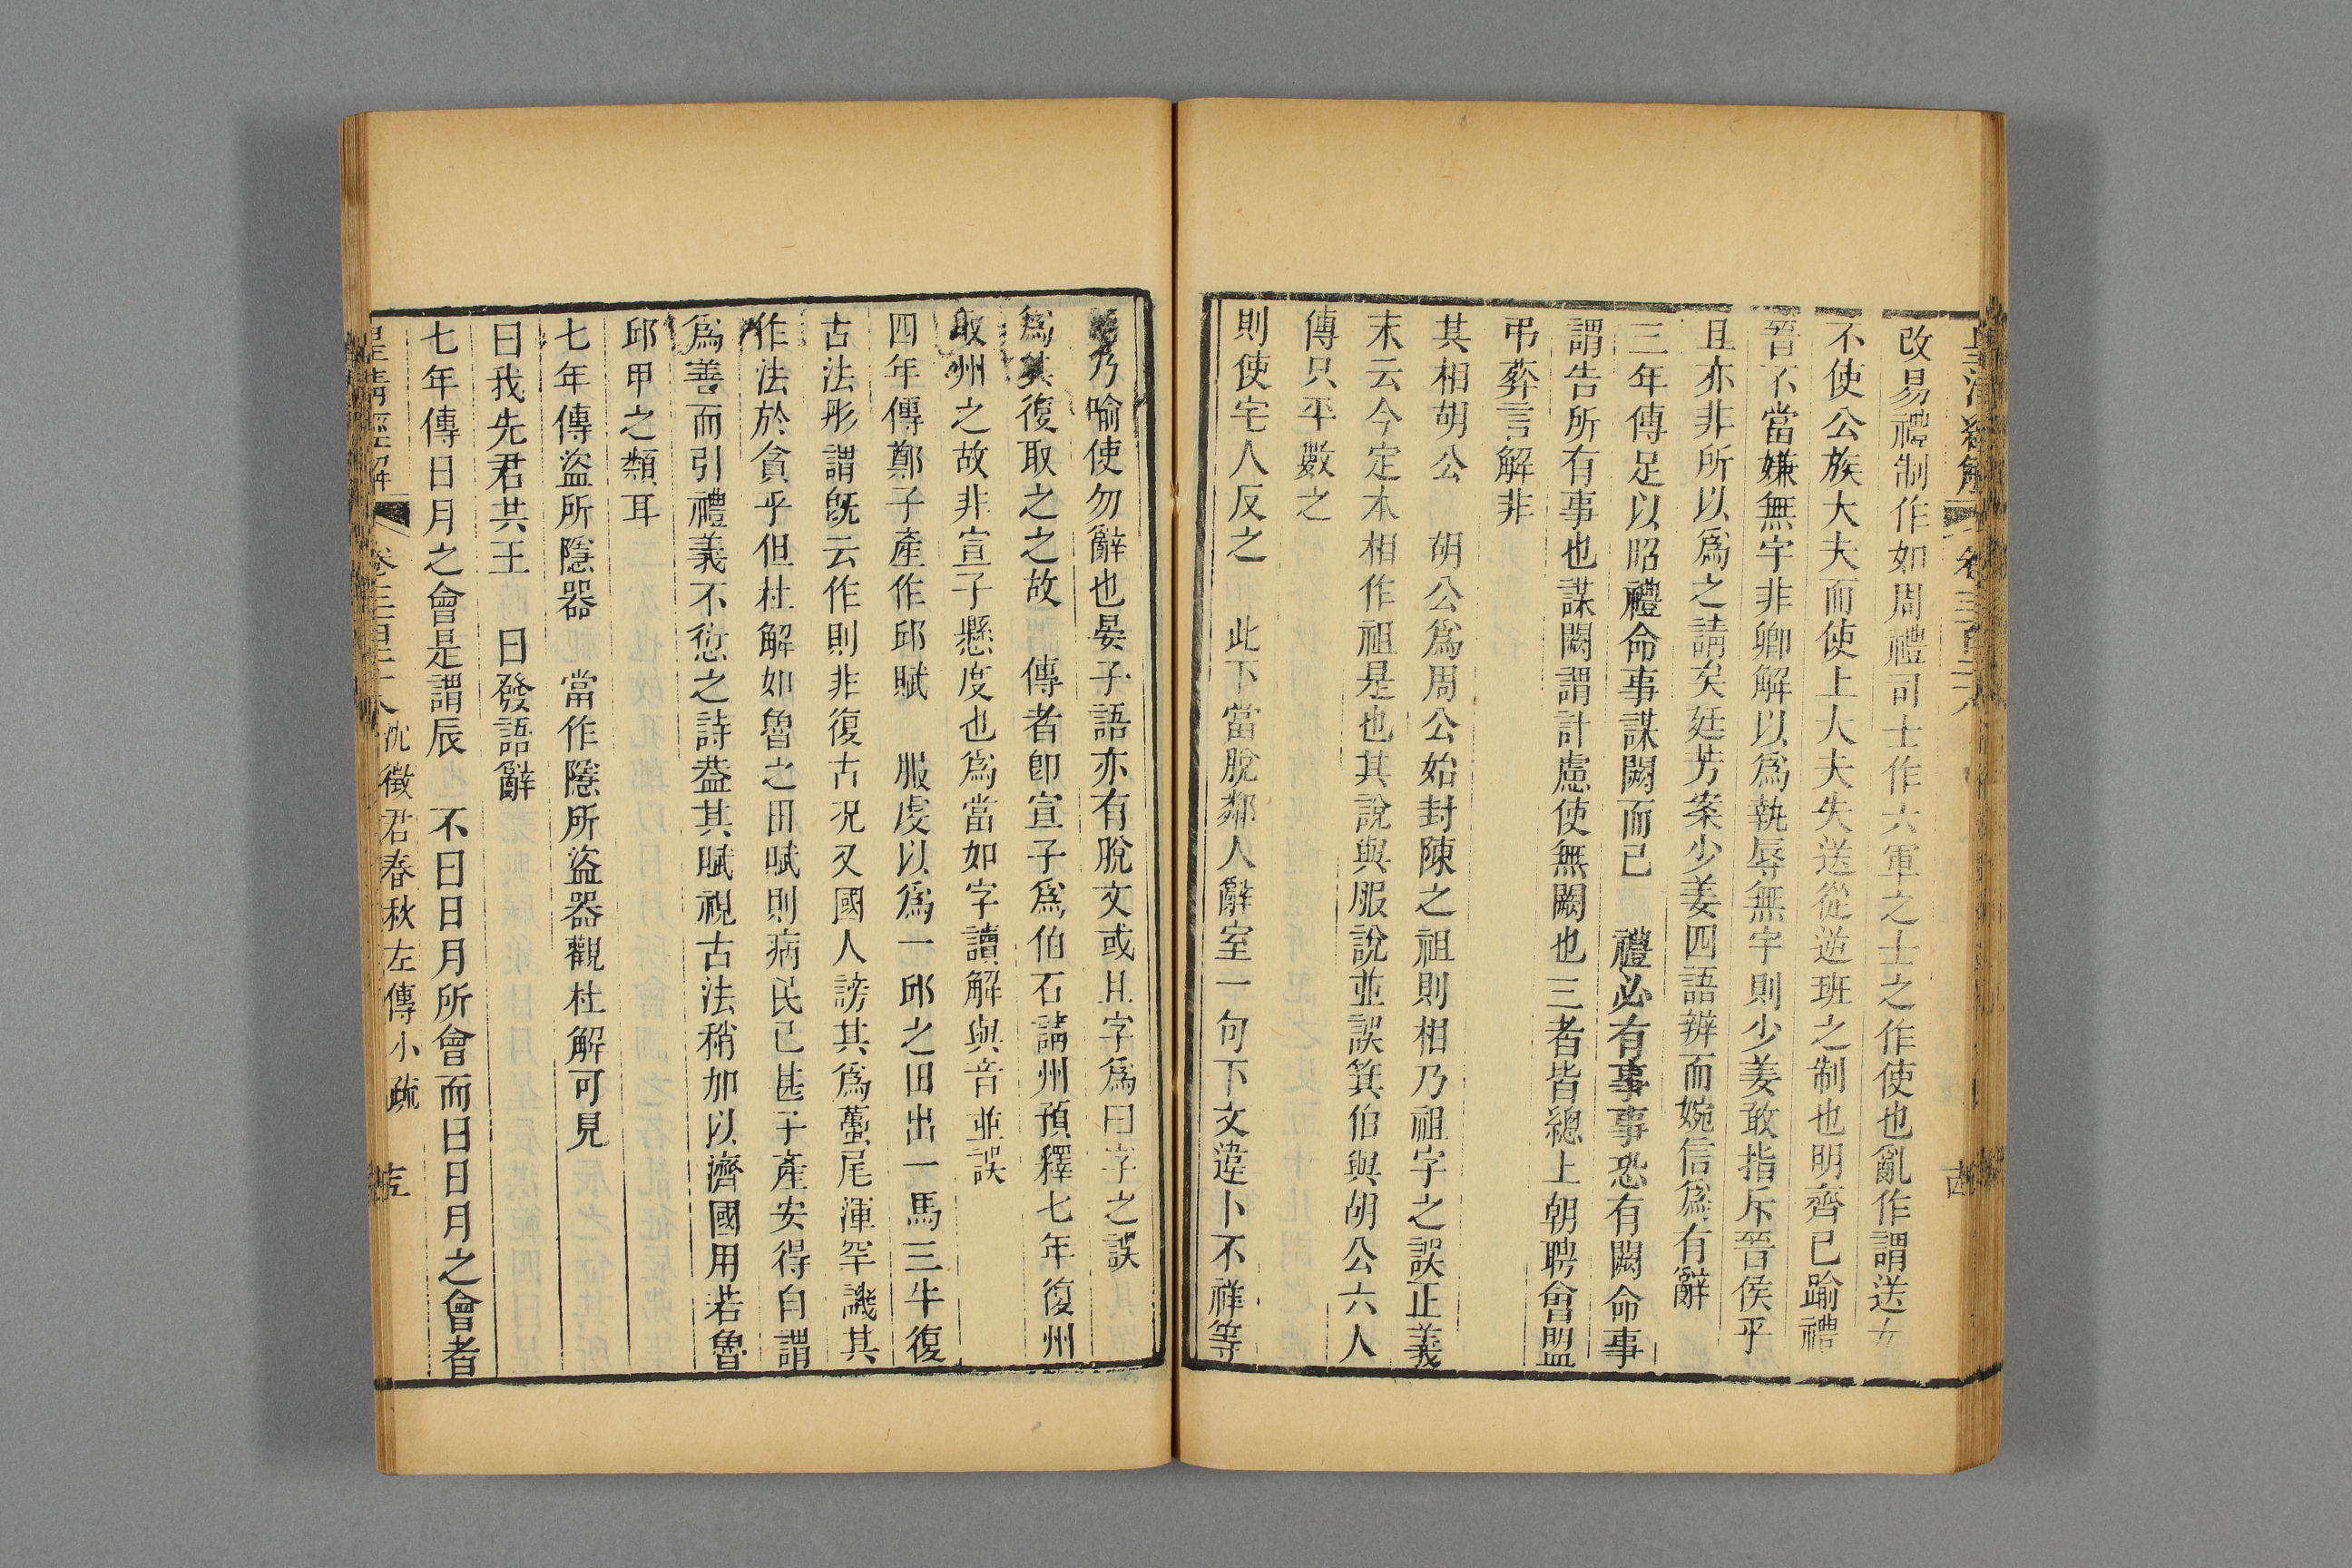 皇清經解 卷三百二十八 古
改易禮制作如周禮司士作六軍之士之作使也亂作謂送女
不使公族大夫而使上大夫失送從逆班之制也明齊已踰禮
晉不當嫌無宇非卿解以爲執辱無宇則少姜敢指斥晉侯乎
且亦非所以爲之請矣廷芳案少姜四語辨而婉信爲有辭
三年傳足以昭禮命事謀闕而已 禮必有事事恐有闕命事
謂告所有事也謀闕謂計慮使無闕也三者皆總上朝聘會盟
弔葬言解非
其相胡公 胡公爲周公始封陳之祖則相乃祖字之誤正義
末云今定本相作祖是也其說與服說並誤箕伯與胡公六人
傳只平數之
則使宅人反之 此下當脫鄰人辭室一句下文違卜不祥等
乃喻使勿辭也晏子語亦有脫文或且字爲曰字之誤
爲其復取之之故 傳者卽宣子爲伯石請州預釋七年復州
取州之故非宣子懸度也爲當如字讀解與音並誤
四年傳鄭子產作邱賦 服虔以爲一邱之田出一馬三牛復
古法形謂旣云作則非復古况又國人謗其爲蠆尾渾罕譏其
作法於貪乎但杜解如魯之田賦則病民已甚子產安得自謂
爲善而引禮義不愆之詩葢其賦視古法稍加以濟國用若魯
邱甲之類耳
七年傳盜所隱器 當作隱所盜器觀杜解可見
曰我先君共王 曰發語辭
七年傳日月之會是謂辰 不曰日月所會而曰日月之會者
皇清經解 卷三百二十八沈徵君春秋左傳小疏